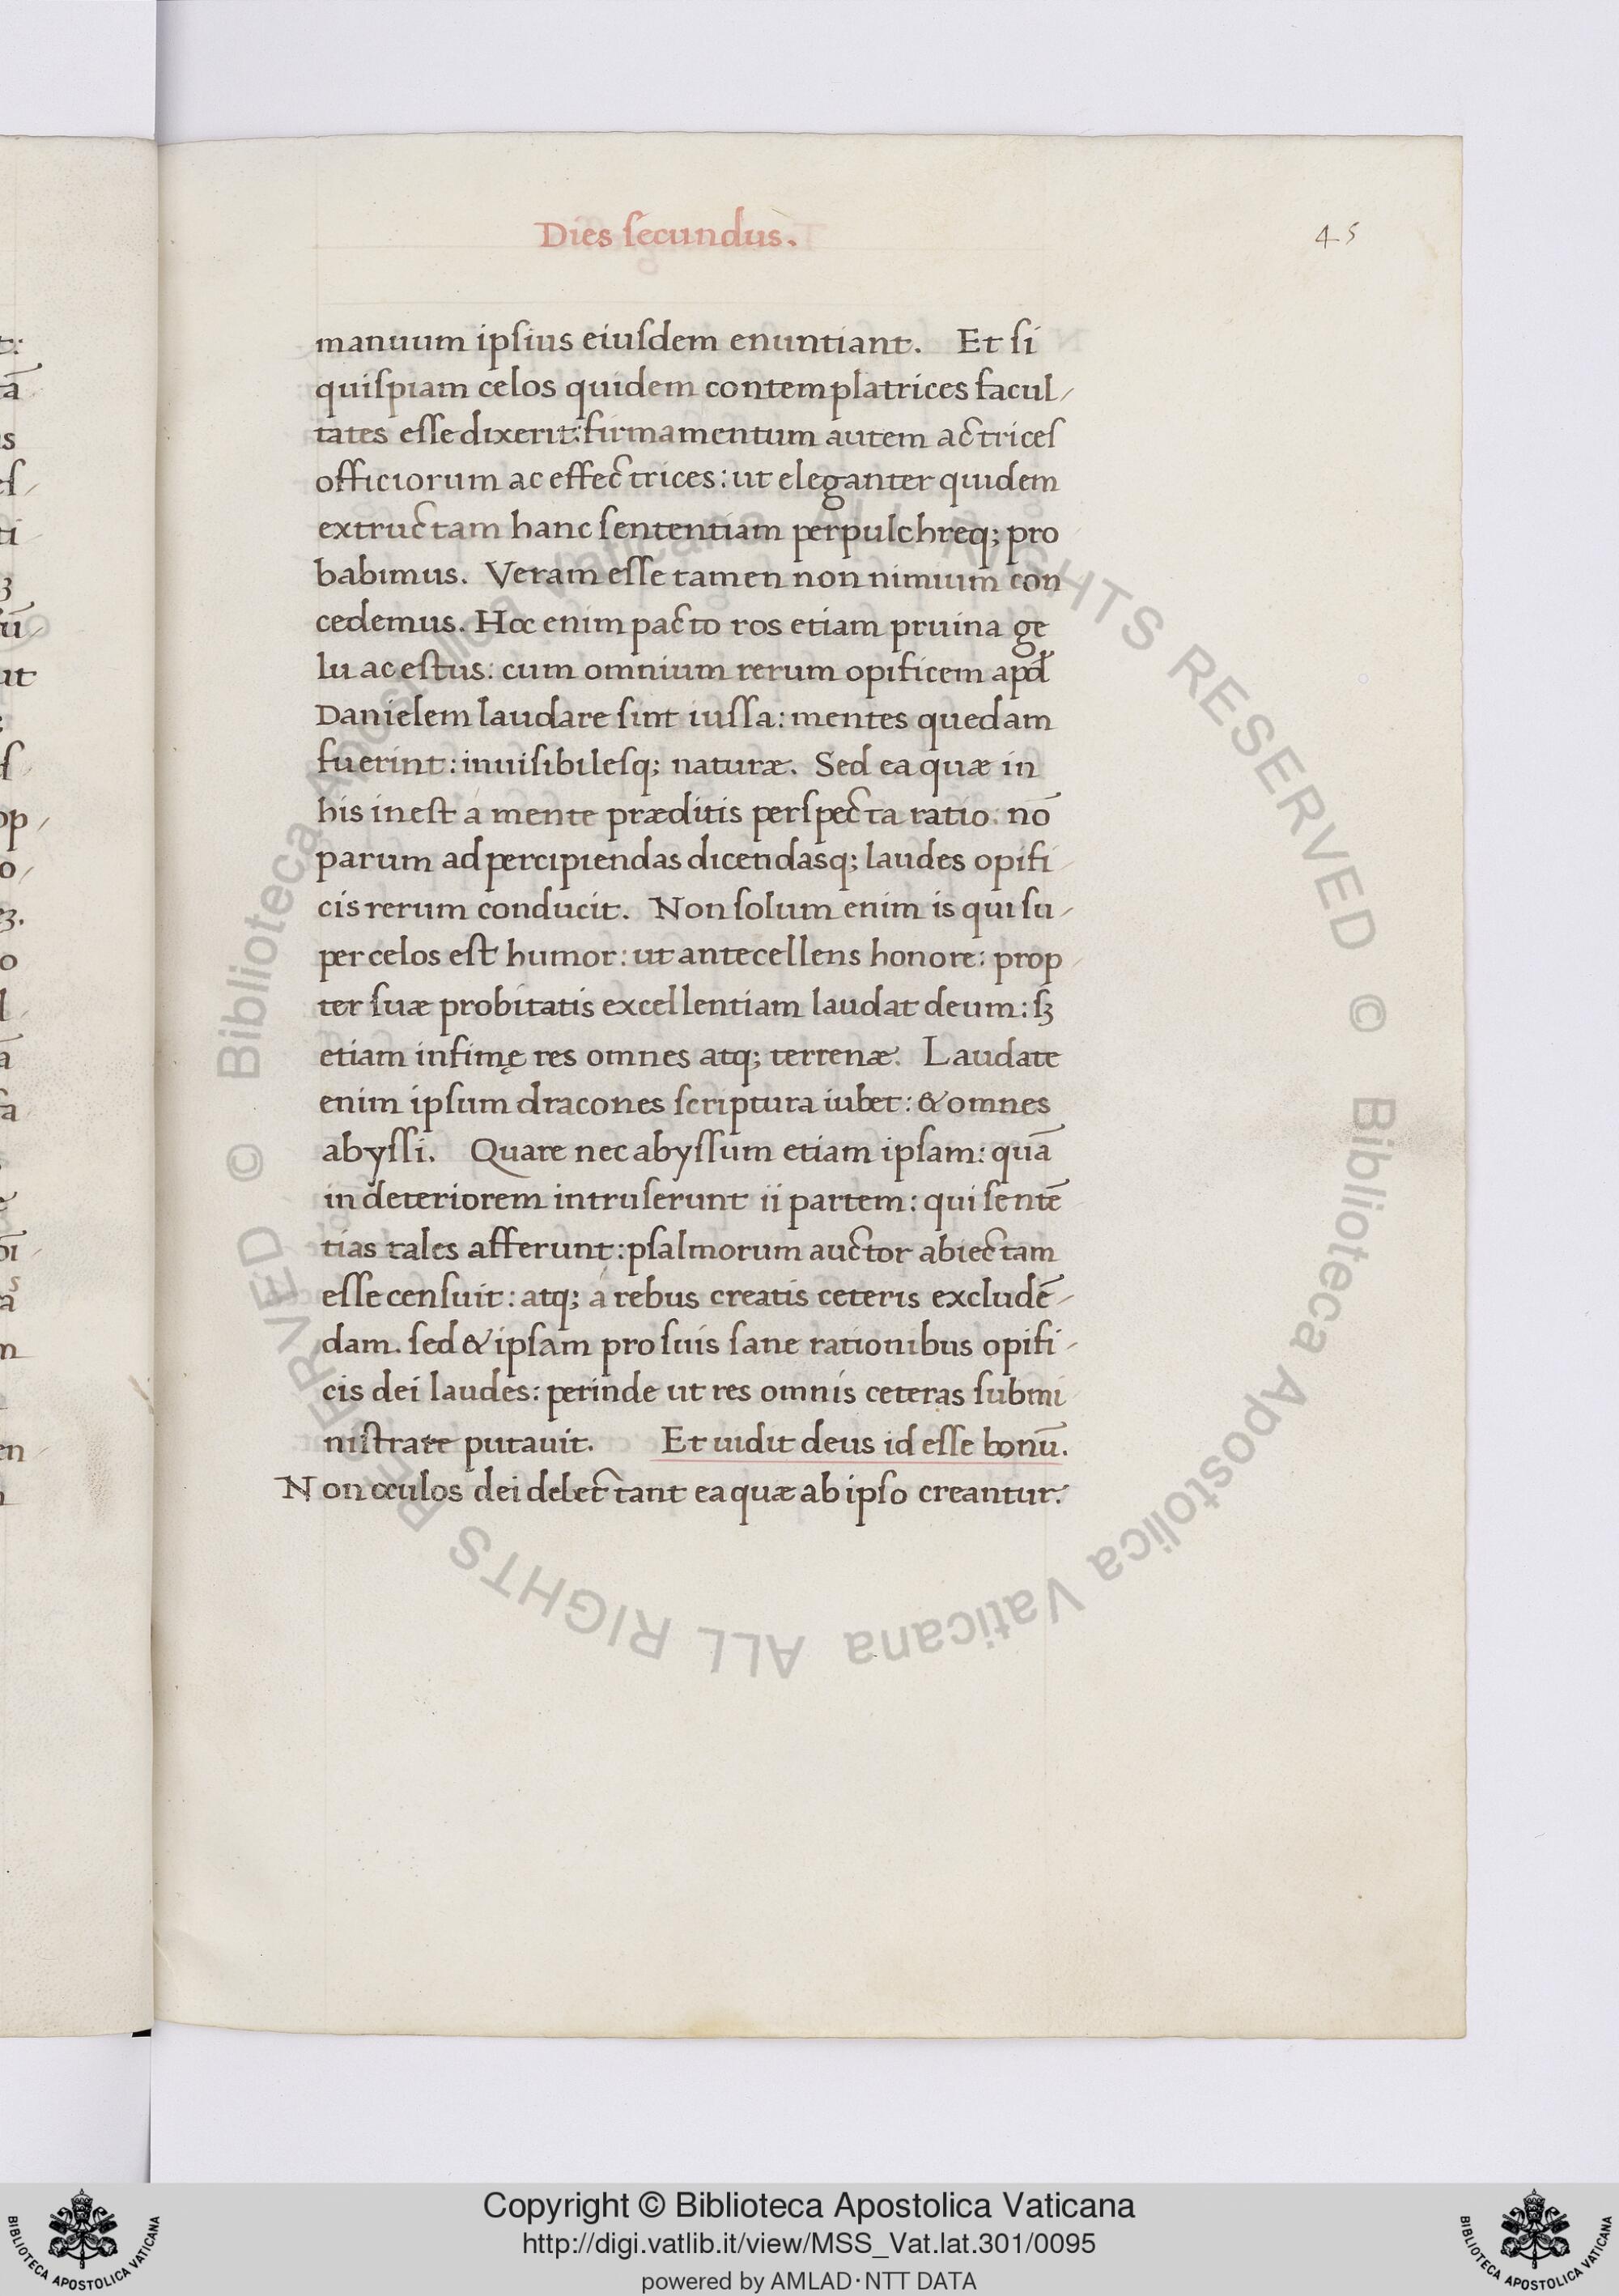 Dies ſecundus.
45
manuum ipſius eiuſdem enuntiant. Et ſi
quiſpiam celos quidem contemplatrices facul/
tates eſſe dixerit: firmamentum autem actriceſ
officiorum ac effectrices: ut eleganter quidem
extructam hanc ſententiam perpulchreq; pro
babimus. Veram eſſe tamen non nimium con
cedemus. Hoc enim pacto ros etiam pruina ge
lu ac eſtus: cum omnium rerum opificem apd̄
Danielem laudare ſint iuſſa: mentes quedam
fuerint: inuiſibileſq; naturæ. Sed ea quæ in
his ineſt á mente præditis perſpecta ratio: nō
parum ad percipiendas dicendasq; laudes opifi
cis rerum conducit. Non ſolum enim is qui ſu/
per celos eſt humor: ut antecellens honore: prop/
ter ſuæ probitatis excellentiam laudat deum: ſꝫ
etiam infimę res omnes atq; terrenæ. Laudate
enim ipſum dracones ſcriptura iubet: & omnes
abyſſi. Quare nec abyſſum etiam ipſam: quā
in deteriorem intruſerunt ii partem: qui ſentē
tias tales afferunt: pſalmorum auctor abiectam
eſſe cenſuit: atq; á rebus creatis ceteris excludē/
dam. ſed & ipſam pro ſuis ſane rationibus opifi/
cis dei laudes: perinde ut res omnis ceteras ſubmi
niſtrare putauit. Et uidit deus id eſſe bonū.
Non oculos dei delectant ea quæ ab ipſo creantur.
Biblioteca Apostolica Vaticana ALL RIGHTS RESERVED ©
Biblioteca Apostolica Vaticana ALL RIGHTS RESERVED ©
Copyright © Biblioteca Apostolica Vaticana
http://digi.vatlib.it/view/MSS_Vat.lat.301/0095
powered by AMLAD·NTT DATA
BIBLIOTECA APOSTOLICA VATICANA
BIBLIOTECA APOSTOLICA VATICANA